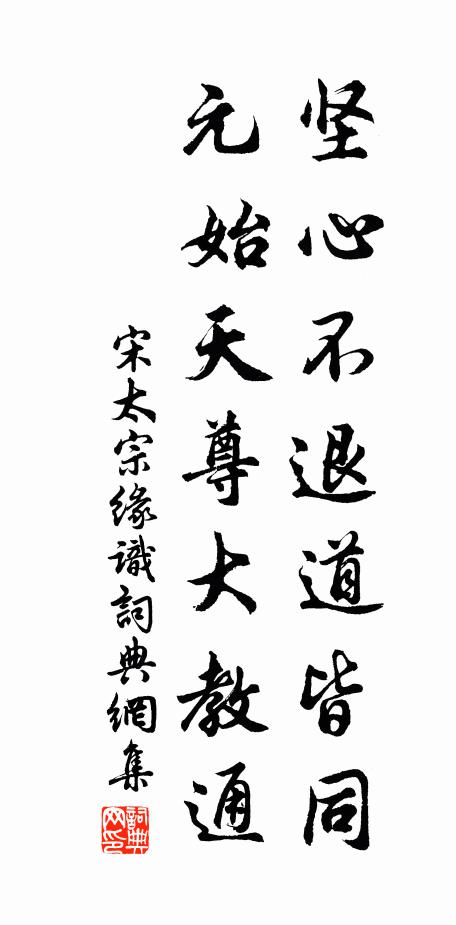 坚心不退道皆同
元始天尊大教通
宋太宗缘識詞典網集
詞典网印